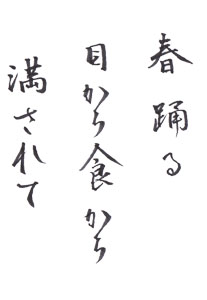 春踊る
目から食から
満されて